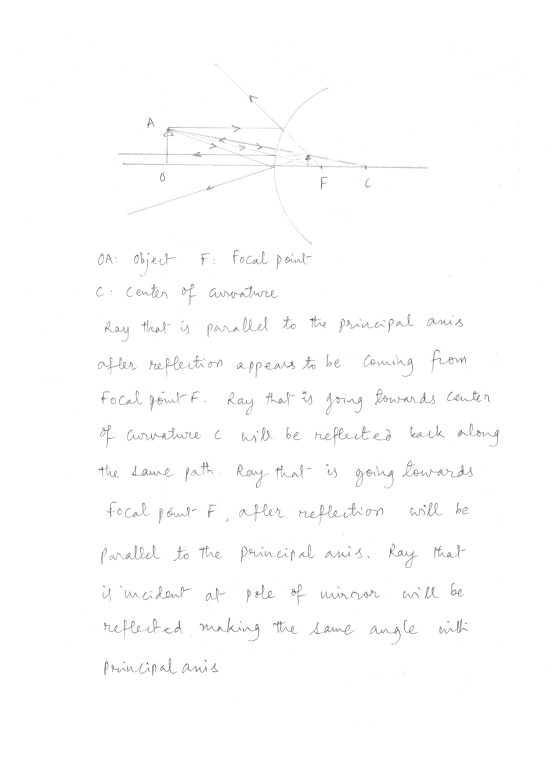 A
O
F
C
OA: Object F: Focal point
C: Center of curvature
Ray that is parallel to the principal axis
after reflection appears to be coming from
Focal point F. Ray that is going towards center
of curvature C will be reflected back along
the same path. Ray that is going towards
focal point F, after reflection will be
parallel to the principal axis. Ray that
is incident at pole of mirror will be
reflected making the same angle with
principal axis